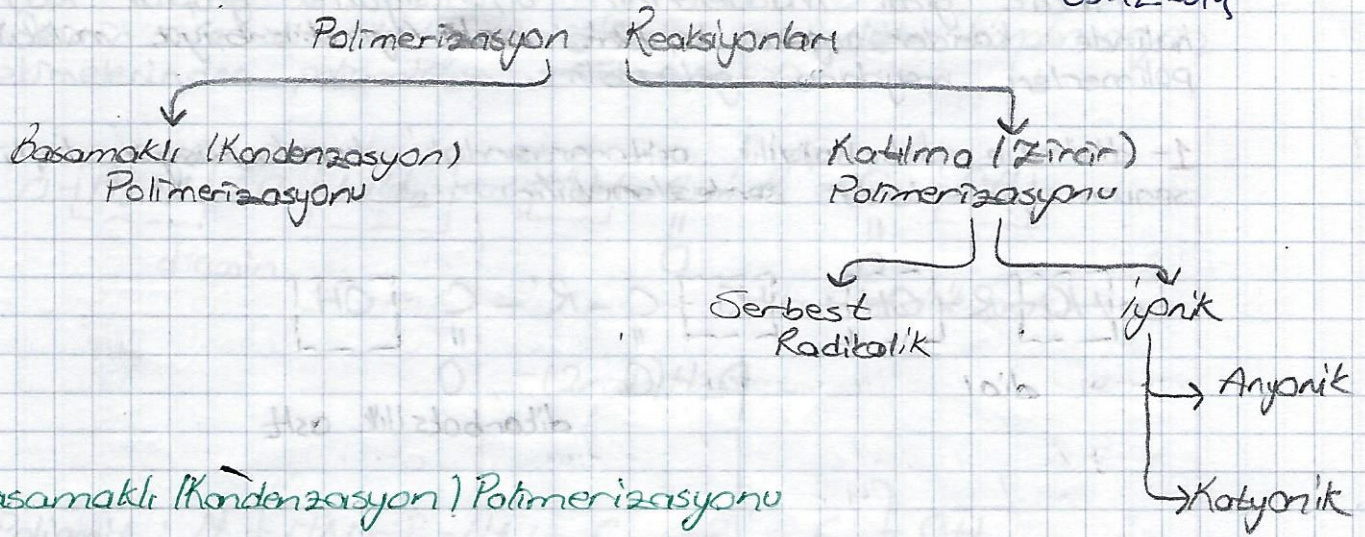 Polimerizasyon Reaksiyonları
Basamaklı (Kondenzasyon)
Polimerizasyonu
Katılma (Zincir)
Polimerizasyonu
Serbest
Radikalik
İyonik
Anyonik
Katyonik
asamaklı (Kondenzasyon) Polimerizasyonu